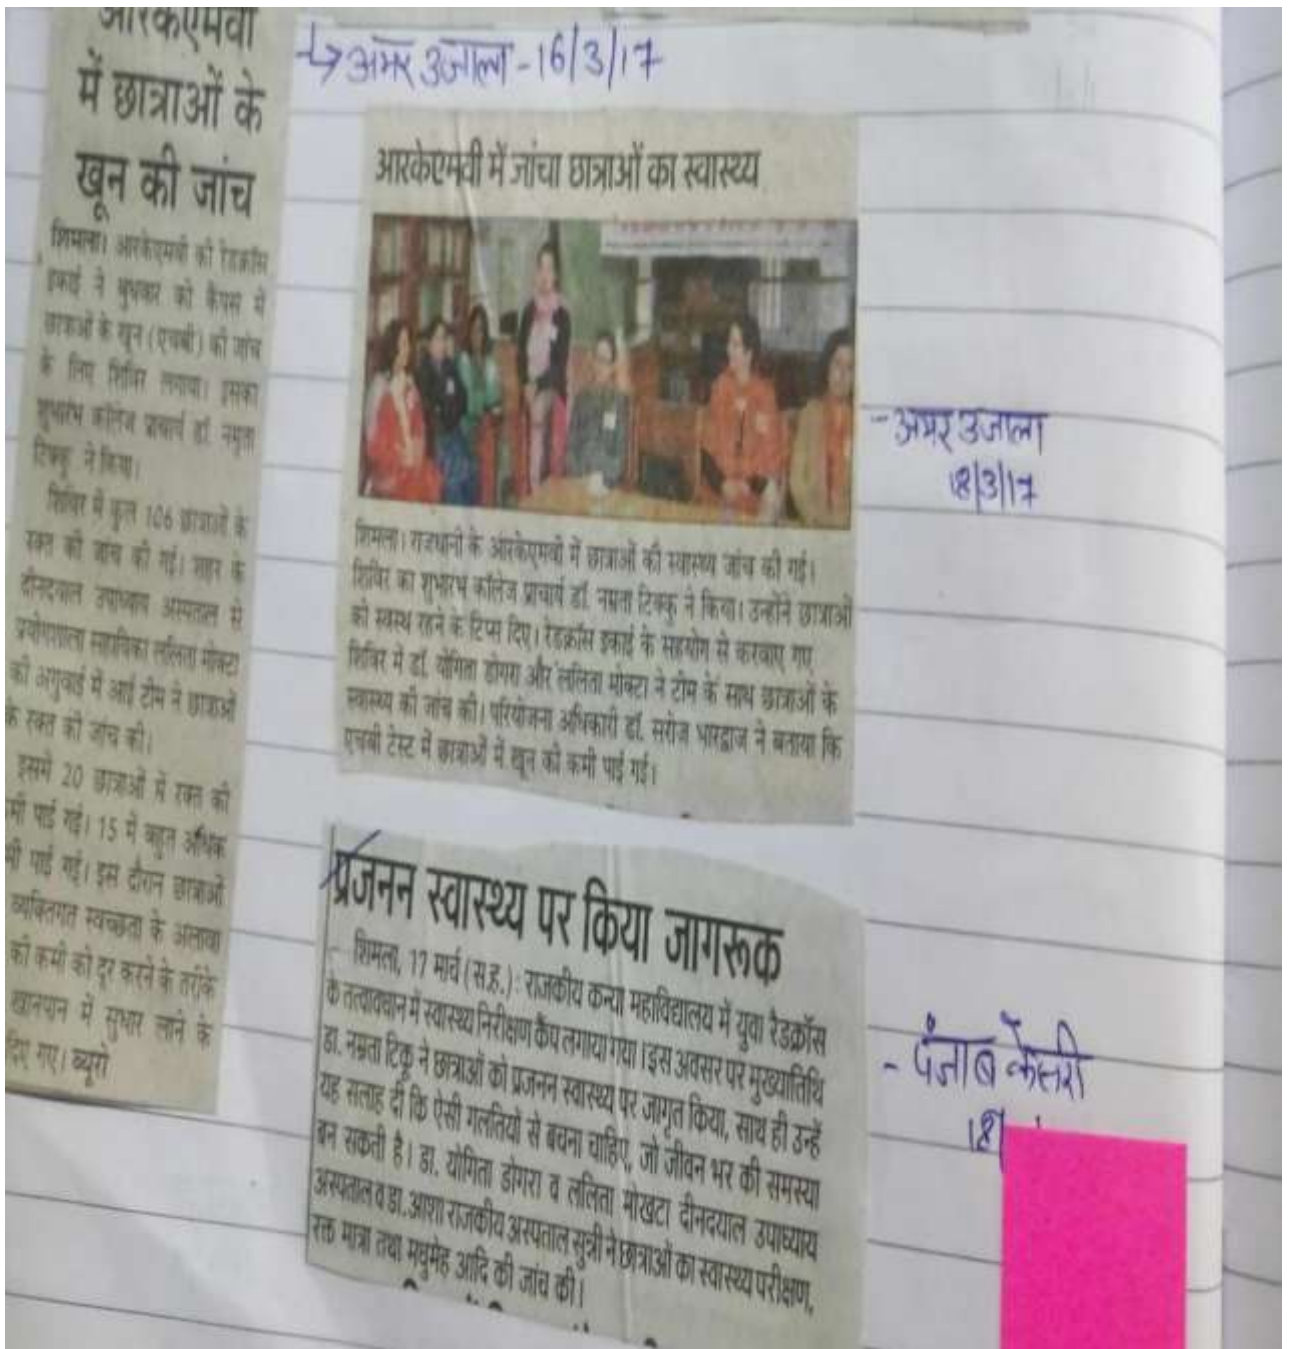 आरकेएमवी
में छात्राओं के
खून की जांच
शिमला। आरकेएमवी की रेडक्रॉस
इकाई ने बुधवार को कैंपस में
छात्राओं के खून (एचबी) की जांच
के लिए शिविर लगाया। इसका
शुभारंभ कॉलेज प्राचार्य डॉ. नम्रता
टिक्कू ने किया।
शिविर में कुल 106 छात्राओं के
रक्त की जांच की गई। शहर के
दीनदयाल उपाध्याय अस्पताल से
प्रयोगशाला सहायिका ललिता मोक्टा
की अगुवाई में आई टीम ने छात्राओं
के रक्त की जांच की।
इसमें 20 छात्राओं में रक्त की
मी पाई गई। 15 में बहुत अधिक
मी पाई गई। इस दौरान छात्राओं
व्यक्तिगत स्वच्छता के अलावा
की कमी को दूर करने के तरीके
खानपान में सुधार लाने के
दिए गए। ब्यूरो
अमर उजाला - 16/3/17
आरकेएमवी में जांचा छात्राओं का स्वास्थ्य
शिमला। राजधानी के आरकेएमवी में छात्राओं की स्वास्थ्य जांच की गई।
शिविर का शुभारंभ कॉलेज प्राचार्य डॉ. नम्रता टिक्कु ने किया। उन्होंने छात्राओं
को स्वस्थ रहने के टिप्स दिए। रेडक्रॉस इकाई के सहयोग से करवाए गए
शिविर में डॉ. योगिता डोगरा और ललिता मोक्टा ने टीम के साथ छात्राओं के
स्वास्थ्य की जांच की। परियोजना अधिकारी डॉ. सरोज भारद्वाज ने बताया कि
एचबी टेस्ट में छात्राओं में खून की कमी पाई गई।
- अमर उजाला
18/3/17
प्रजनन स्वास्थ्य पर किया जागरूक
शिमला, 17 मार्च (स.ह.): राजकीय कन्या महाविद्यालय में युवा रैडक्रॉस
के तत्वावधान में स्वास्थ्य निरीक्षण कैंप लगाया गया। इस अवसर पर मुख्यातिथि
डा. नम्रता टिकू ने छात्राओं को प्रजनन स्वास्थ्य पर जागृत किया, साथ ही उन्हें
यह सलाह दी कि ऐसी गलतियों से बचना चाहिए, जो जीवन भर की समस्या
बन सकती है। डा. योगिता डोगरा व ललिता मोखटा दीनदयाल उपाध्याय
अस्पताल व डा. आशा राजकीय अस्पताल सुन्नी ने छात्राओं का स्वास्थ्य परीक्षण,
रक्त मात्रा तथा मधुमेह आदि की जांच की।
- पंजाब केसरी
18/